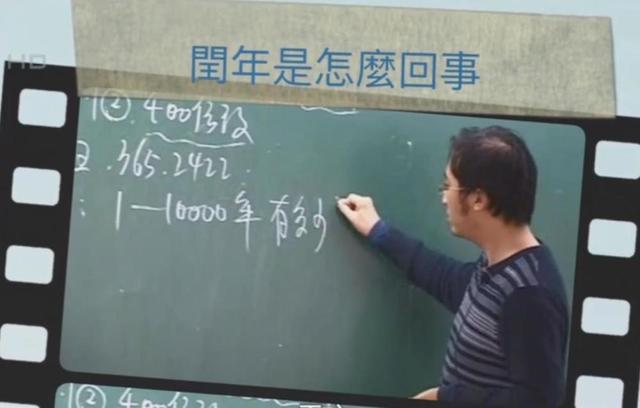 HD
閏年是怎麼回事
② 400倍数
365.2422
1—10000年有多少
② 400倍数